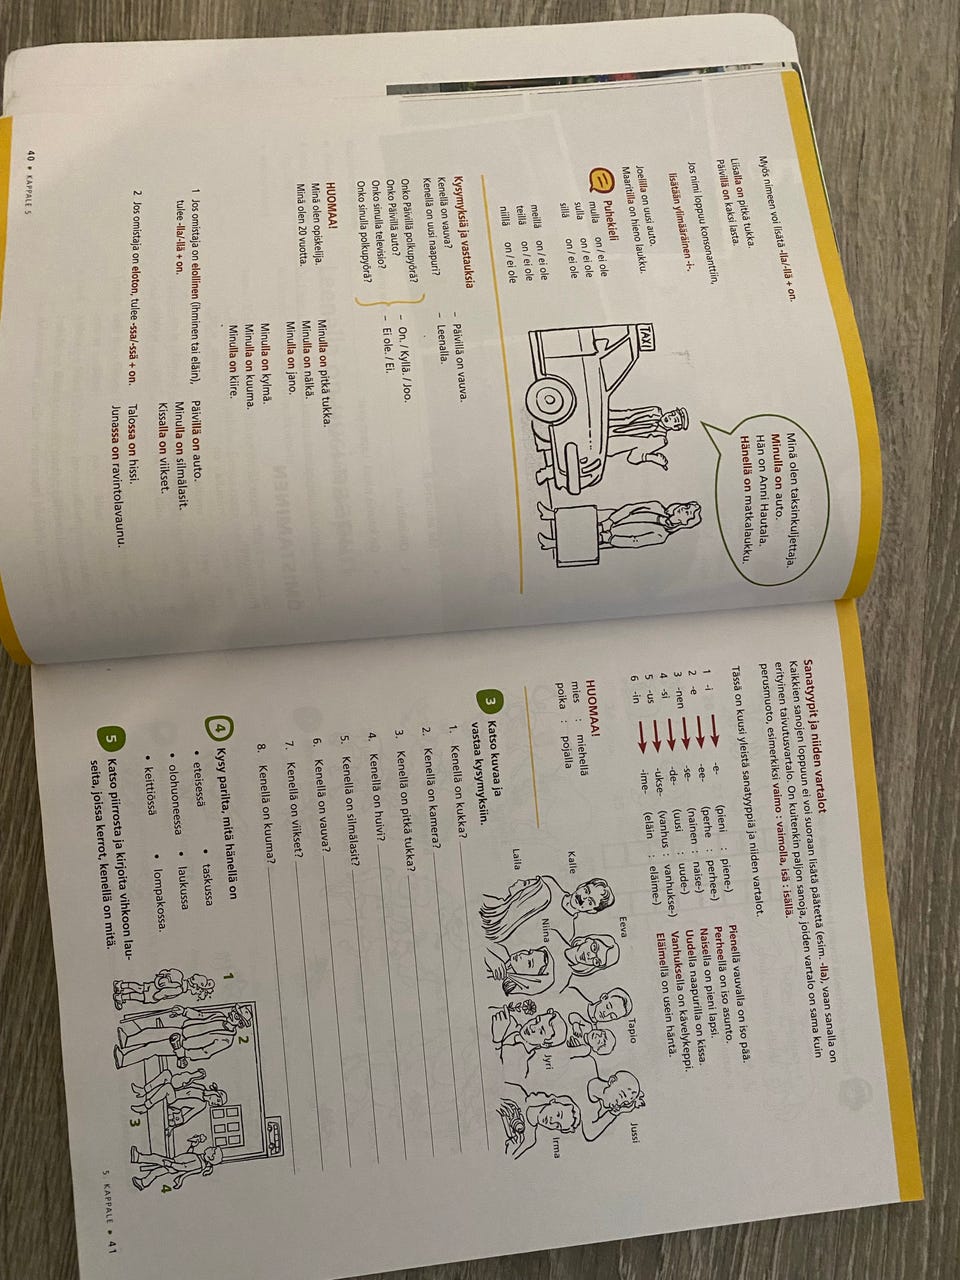 Myös nimeen voi lisätä -lla/-llä + on.
Liisalla on pitkä tukka.
Päivillä on kaksi lasta.
Jos nimi loppuu konsonanttiin,
lisätään ylimääräinen -i-.
Joelilla on uusi auto.
Maaritilla on hieno laukku.
Puhekieli
mulla on / ei ole
sulla on / ei ole
sillä on / ei ole
meillä on / ei ole
teillä on / ei ole
niillä on / ei ole
TAXI
Minä olen taksinkuljettaja.
Minulla on auto.
Hän on Anni Hautala.
Hänellä on matkalaukku.
Kysymyksiä ja vastauksia
Kenellä on vauva? – Päivillä on vauva.
Kenellä on uusi naapuri? – Leenalla.
Onko Päivillä polkupyörä?
Onko Päivillä auto? – On. / Kyllä. / Joo.
Onko sinulla televisio? – Ei ole. / Ei.
Onko sinulla polkupyörä?
HUOMAA!
Minä olen opiskelija. Minulla on pitkä tukka.
Minä olen 20 vuotta. Minulla on nälkä.
Minulla on jano.
Minulla on kylmä.
Minulla on kuuma.
Minulla on kiire.
1 Jos omistaja on elollinen (ihminen tai eläin), Päivillä on auto.
tulee -lla/-llä + on. Minulla on silmälasit.
Kissalla on viikset.
2 Jos omistaja on eloton, tulee -ssa/-ssä + on. Talossa on hissi.
Junassa on ravintolavaunu.
40 • KAPPALE 5
Sanatyypit ja niiden vartalot
Kaikkien sanojen loppuun ei voi suoraan lisätä päätettä (esim. -lla), vaan sanalla on
erityinen taivutusvartalo. On kuitenkin paljon sanoja, joiden vartalo on sama kuin
perusmuoto, esimerkiksi vaimo : vaimolla, isä : isällä.
Tässä on kuusi yleistä sanatyyppiä ja niiden vartalot.
1 -i -e- (pieni : piene-) Pienellä vauvalla on iso pää.
2 -e -ee- (perhe : perhee-) Perheellä on iso asunto.
3 -nen -se- (nainen : naise-) Naisella on pieni lapsi.
4 -si -de- (uusi : uude-) Uudella naapurilla on kissa.
5 -us -ukse- (vanhus : vanhukse-) Vanhuksella on kävelykeppi.
6 -in -ime- (eläin : eläime-) Eläimellä on usein häntä.
HUOMAA!
mies : miehellä
poika : pojalla
3 Katso kuvaa ja
vastaa kysymyksiin.
1. Kenellä on kukka?
2. Kenellä on kamera?
3. Kenellä on pitkä tukka?
4. Kenellä on huivi?
5. Kenellä on silmälasit?
6. Kenellä on vauva?
7. Kenellä on viikset?
8. Kenellä on kuuma?
Kalle
Eeva
Tapio
Jussi
Laila
Niina
Jyri
Irma
4 Kysy parilta, mitä hänellä on
• eteisessä • taskussa
• olohuoneessa • laukussa
• keittiössä • lompakossa.
5 Katso piirrosta ja kirjoita vihkoon lau-
seita, joissa kerrot, kenellä on mitä.
1
2
3
4
5. KAPPALE • 41